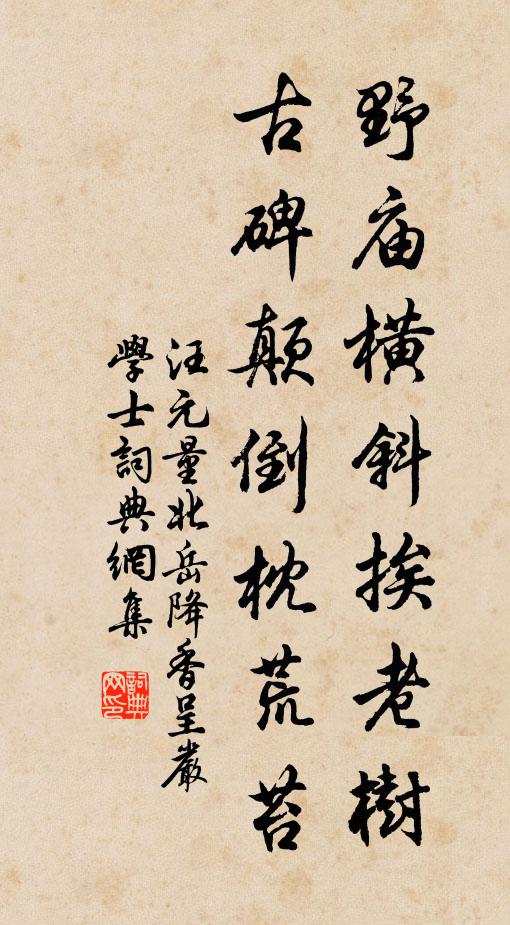 野庙橫斜挨老樹
古碑顛倒枕荒苔
汪元量北岳降香呈嚴
學士詞典網集
詞典网印